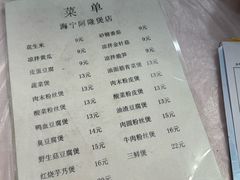 菜 单
海宁阿隆煲店
花生米 9元 砂糖番茄 9元
凉拌黄瓜 9元 凉拌金针菇 9元
皮蛋豆腐 9元 凉拌脆笋 9元
蔬菜煲 13元 油面筋青菜煲 13元
肉末粉皮煲 13元 肉末粉丝煲 13元
酸菜粉皮煲 13元 酸菜粉丝煲 13元
鸭血豆腐煲 13元 油渣豆腐煲 13元
臭豆腐煲 14元 肉圆粉丝煲 15元
野生菇豆腐煲 15元 牛肉粉丝煲 16元
红烧芋艿煲 16元 三鲜煲 22元